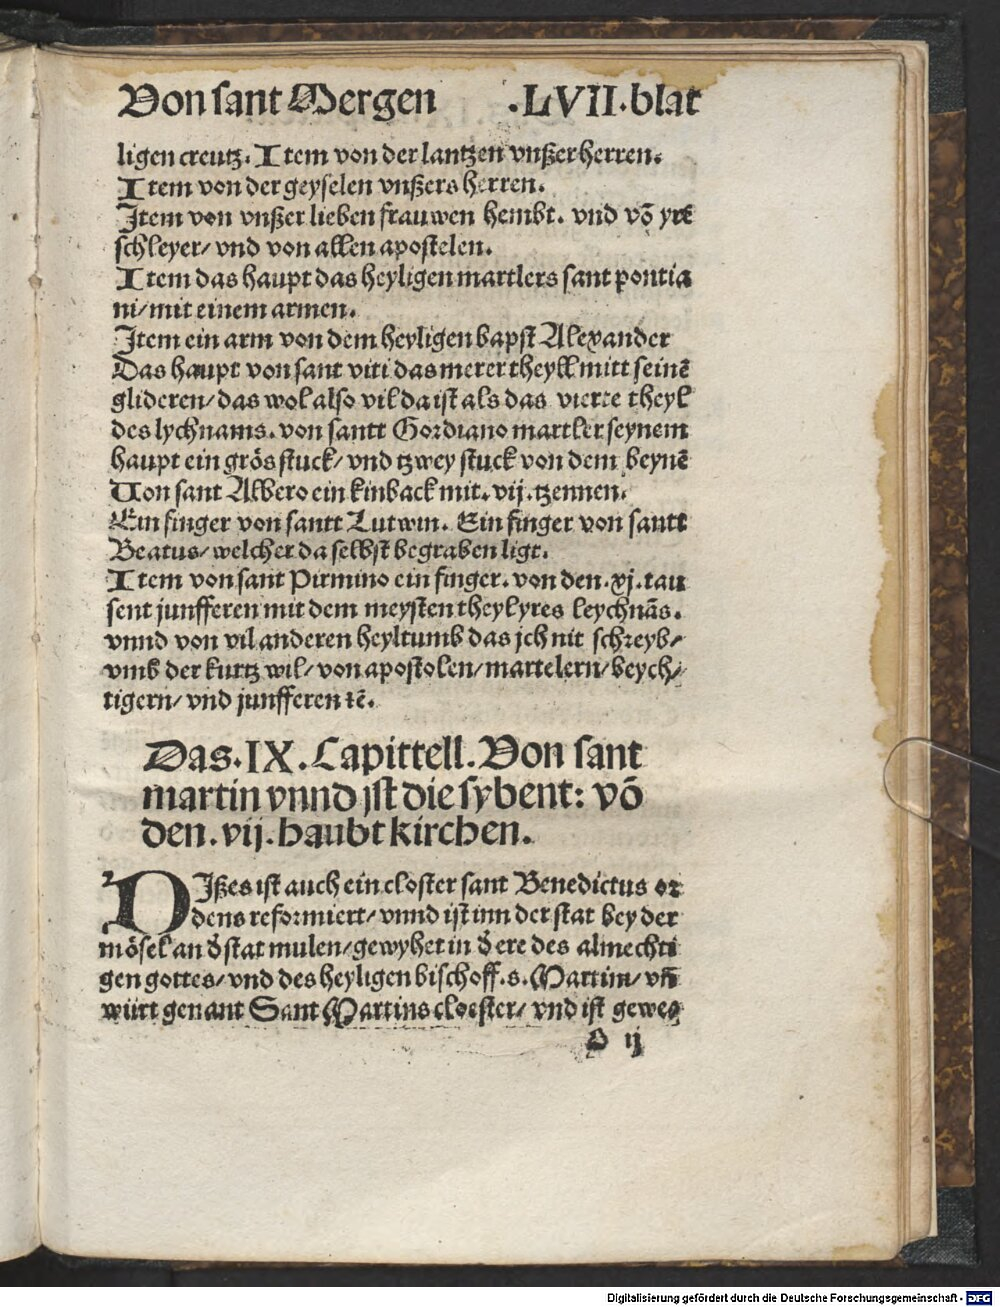 Von sant Mergen .LVII.blat
ligen creutz. Item von der lantzen vnßer herren.
Item von der geyselen vnßers herren.
Item von vnßer lieben frauwen hembt. vnd vō yrē
schleyer/ vnd von allen apostelen.
Item das haupt das heyligen martlers sant pontia
ni/ mit einem armen.
Item ein arm von dem heyligen bapst Alexander
Das haupt von sant viti das merer theyll mitt seinē
glideren/ das wol also vil da ist als das vierte theyl
des lychnams. von santt Gordiano martler seynem
haupt ein grös stuck/ vnd tzwey stuck von dem beynē
Von sant Albero ein kinback mit. vij. tzennen.
Ein finger von santt Lutwin. Ein finger von santt
Beatus/ welcher da selbst begraben ligt.
Item von sant Pirmino ein finger. von den .xj. tau
sent junfferen mit dem meysten theyl yres leychnās.
vnnd von vil anderen heyltumb das jch nit schreyb/
vmb der kurtz wil/ von apostolen/ martelern/ beych/
tigern/ vnd junfferen ꝛē.
Das .IX. Capittell. Von sant
martin vnnd jst die sybent: vō
den .vij. haubt kirchen.
DIßes ist auch ein closter sant Benedictus or
dens reformiert/ vnnd ist inn der stat bey der
mösel an d̄ stat mulen/ gewyhet in d̄ ere des almechti
gen gottes/ vnd des heyligen bischoff .s. Martin/ vn̄
würt genant Sant Martins cloester/ vnd ist gewes
O ij
Digitalisierung gefördert durch die Deutsche Forschungsgemeinschaft - DFG